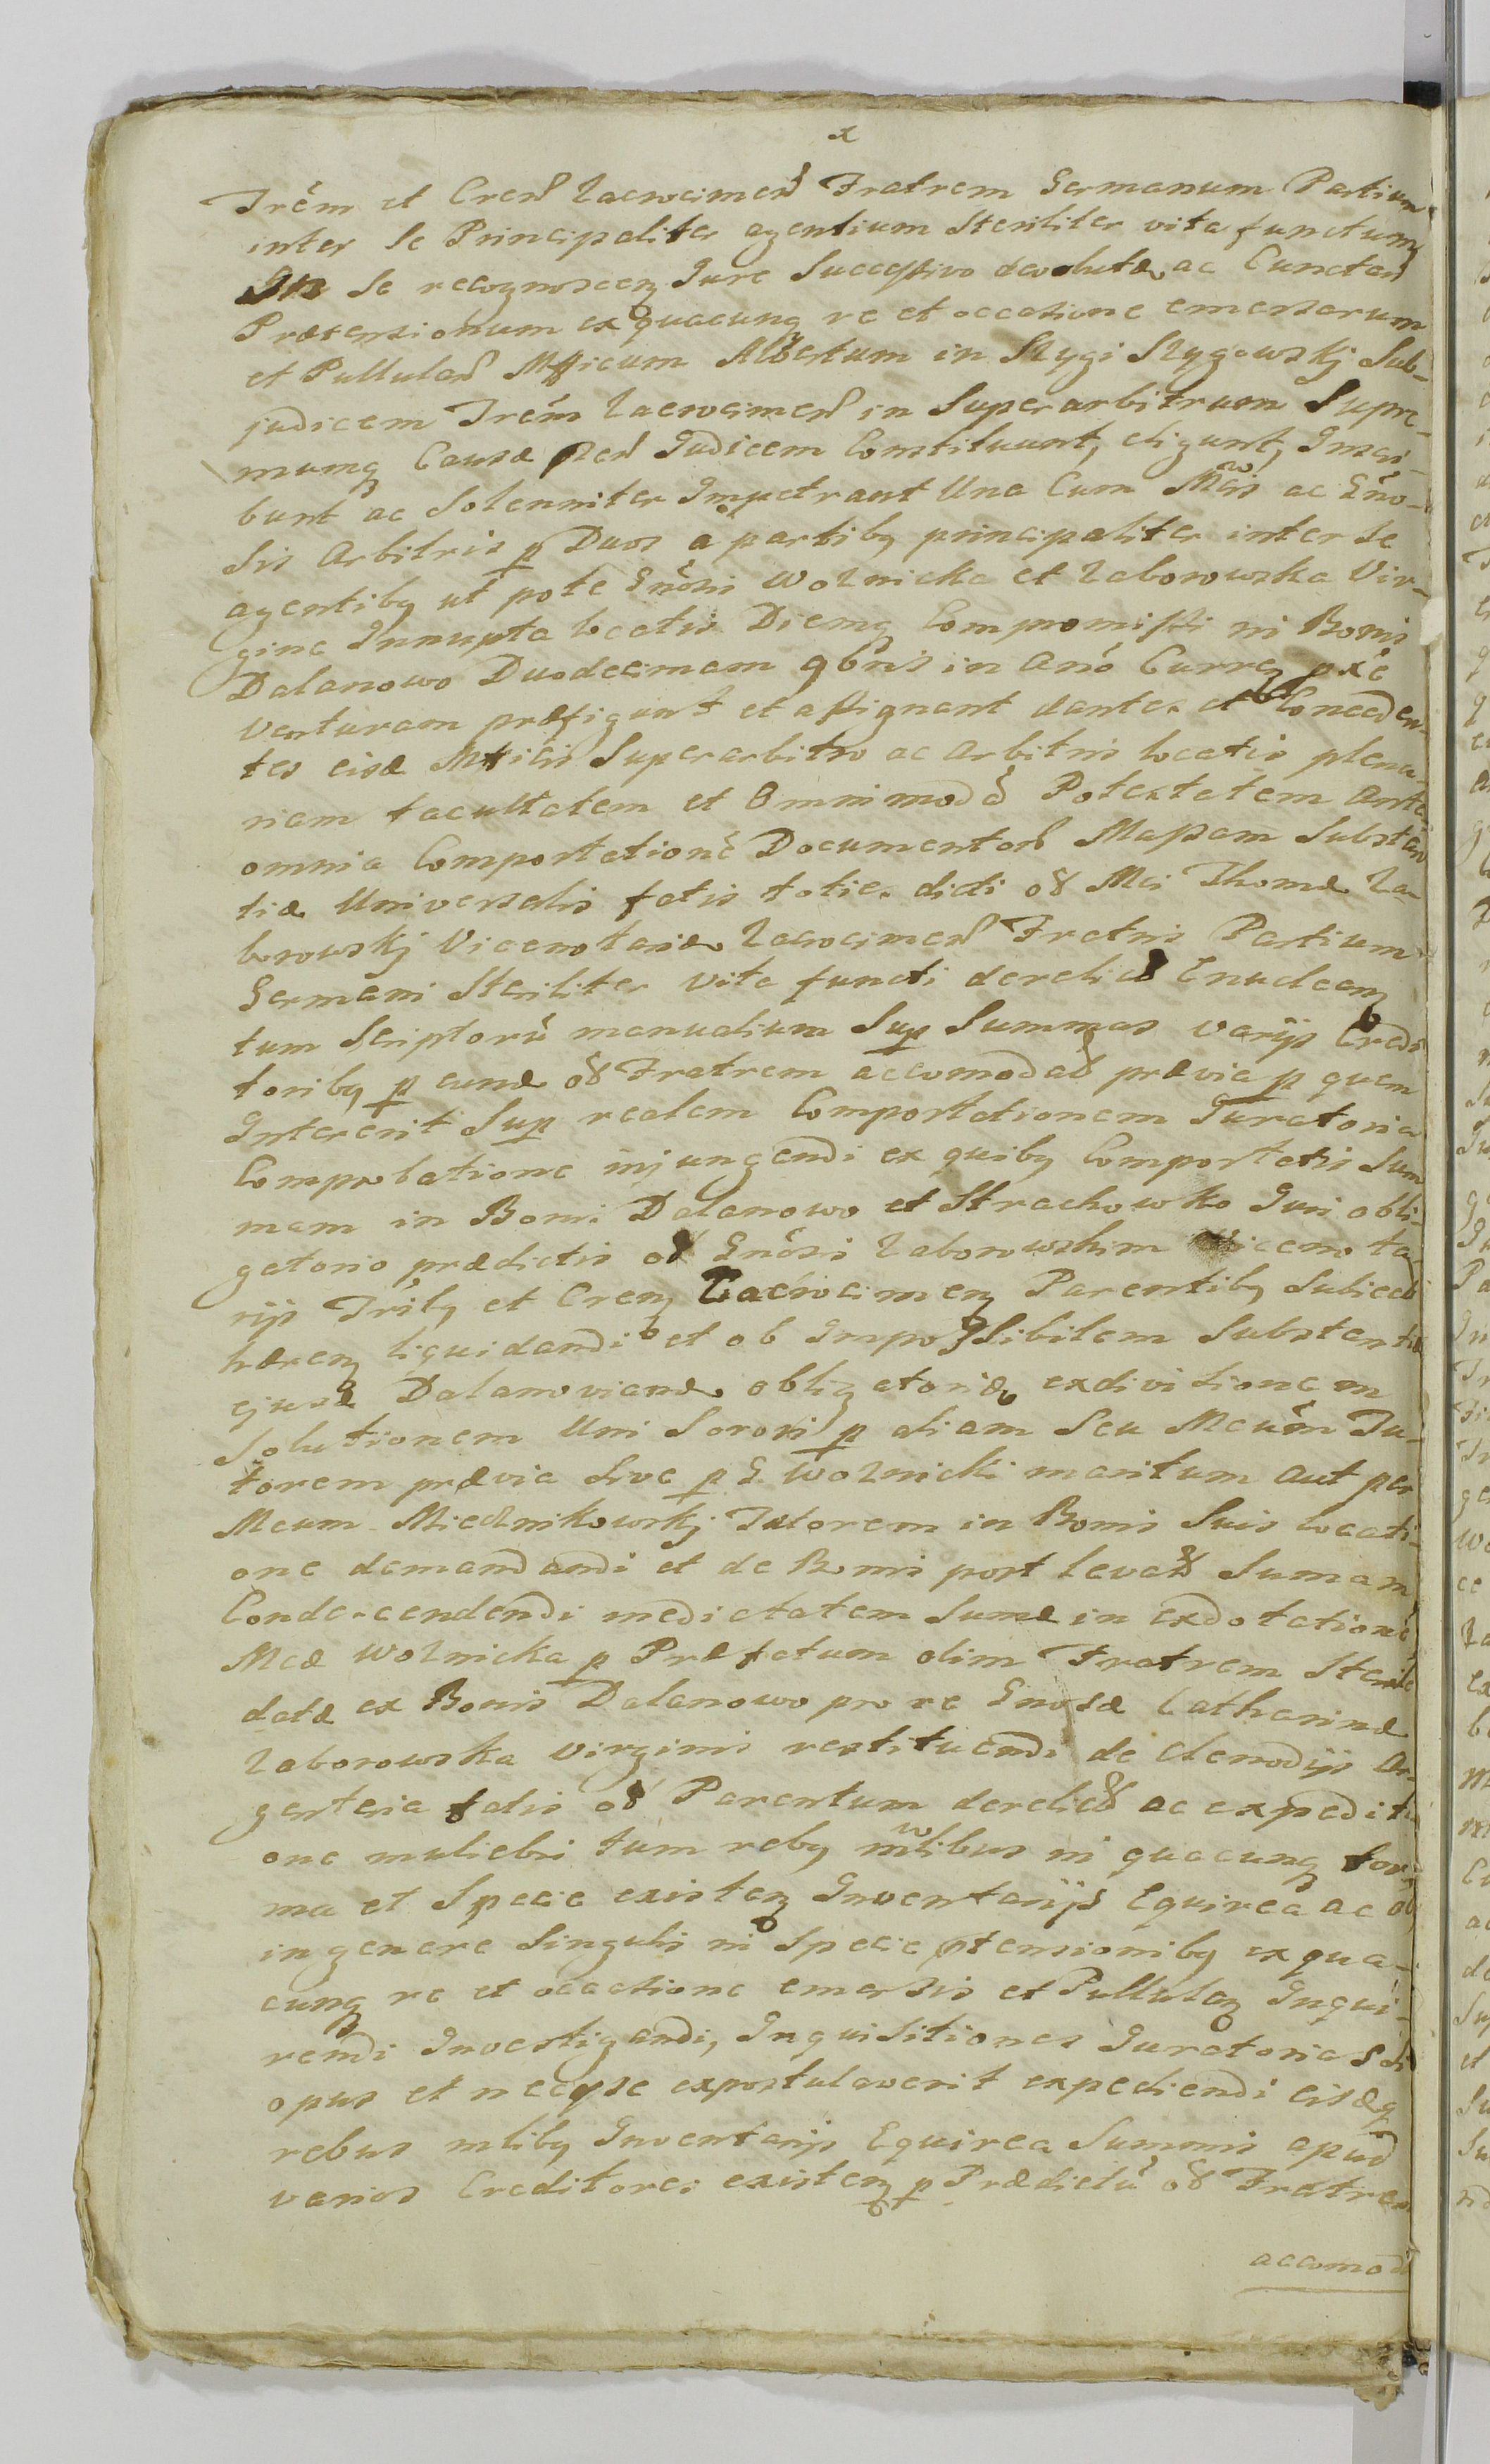 x
Trem̃ et Cren̄ Zacrocimen̄ Fratrem Germanum Partium
inter se Principaliter agentium Steriliter vita functum
In se recognoscen Jure Successivo devolutæ ac Cunctar̄
Prætensionum ex quacunq re et occasione emersarum
et Pullulan̄ Mfficum Albertum in Slygi Slygowskj Sub-
judicem Trem̃ Zacrocimen̄ in Superarbitrum Supre-
mumq Causæ Judicem Constituunt, eligunt, Inscri-
bunt ac Solenniter Impetrant Una Cum Mcis ac Gn̄o-
sis Arbitris p Duos a partibq principaliter inter se
agentibq ut pote Gn̄osis Wolnicka et Zaborowska Vir-
gine Innupta locatis Diemq Compromissi in Bonis
Dalanowo Duodecimam 9bris in Anō Curren pxē
Venturam præfigunt et assignant dantes et Conceden-
tes eisd Mfficis Superarbitro ac Arbitris locatis plena-
riam facultatem et Omnimodā Potestatem Ante
omnia Comportationē Documentor̄ Massam Substan-
tiæ Universalis fatis toties dicti oð Mci Thomæ Za-
borowskj Vicenotariæ Zacrocimen̄ Fratris Partium
Germani Steriliter Vita functi derelict Enuclean
tum Scriptorū manualium Sup Summas varijs Credi
toribq p eund oð Fratrem accomodat prævia p quem
Intererit Sup realem Comportationem Juratoria
Comprobatione injungendi ex quibq Comportatis Sum
mam in Bonis Dalanowo et Strachowko Juri obli-
gatorio prædictis oð Gn̄osis Zaborowskim Vicenota
rijs Tribq et Cren Zacrocimen Parentibq Subiect
hæren liquidandi et ob Impossibilem Substantiæ
ejusd Dalanovianæ obligatoriæ exdivisionem
Solutionem Uni Sorori p aliam Seu Meum̃ Tu-
torem prævia sive p G. Wolnicki maritum aut per
Mcum Miednikowskj Tutorem in Bonis Suis locati-
one demandandi et de Bonis post levat Sumam
Condescendendi medietatem Sumæ in exdotationē
Mcæ Wolnicka p Præfatum olim Fratrem Steril
datæ ex Bonis Dalanowo pro re Gnosæ Catharinæ
Zaborowska virginis restituendi de Clenodijs Ar-
genteria fatis oð Parentum derelict ac expediti
one muliebri tum rebq mlibus in quacunq for
ma et Specie existen Inventarijs Equirea ac ab
in genere Singulis in Specie ptensionibq ex qua-
cunq re et occasione emersis et Pullulan Inqui-
rendi Investigandi, Inquisitiones Juratorias si
opus et necesse expostulaverit expediendi eisdq
rebus mlibq Inventarijs Equirea Summis apud
varios Creditores existen p Prædictū oð Fratrem
accomod